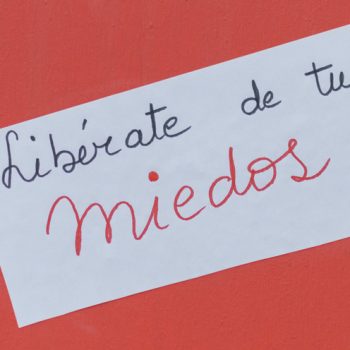 Libérate de tu
miedos